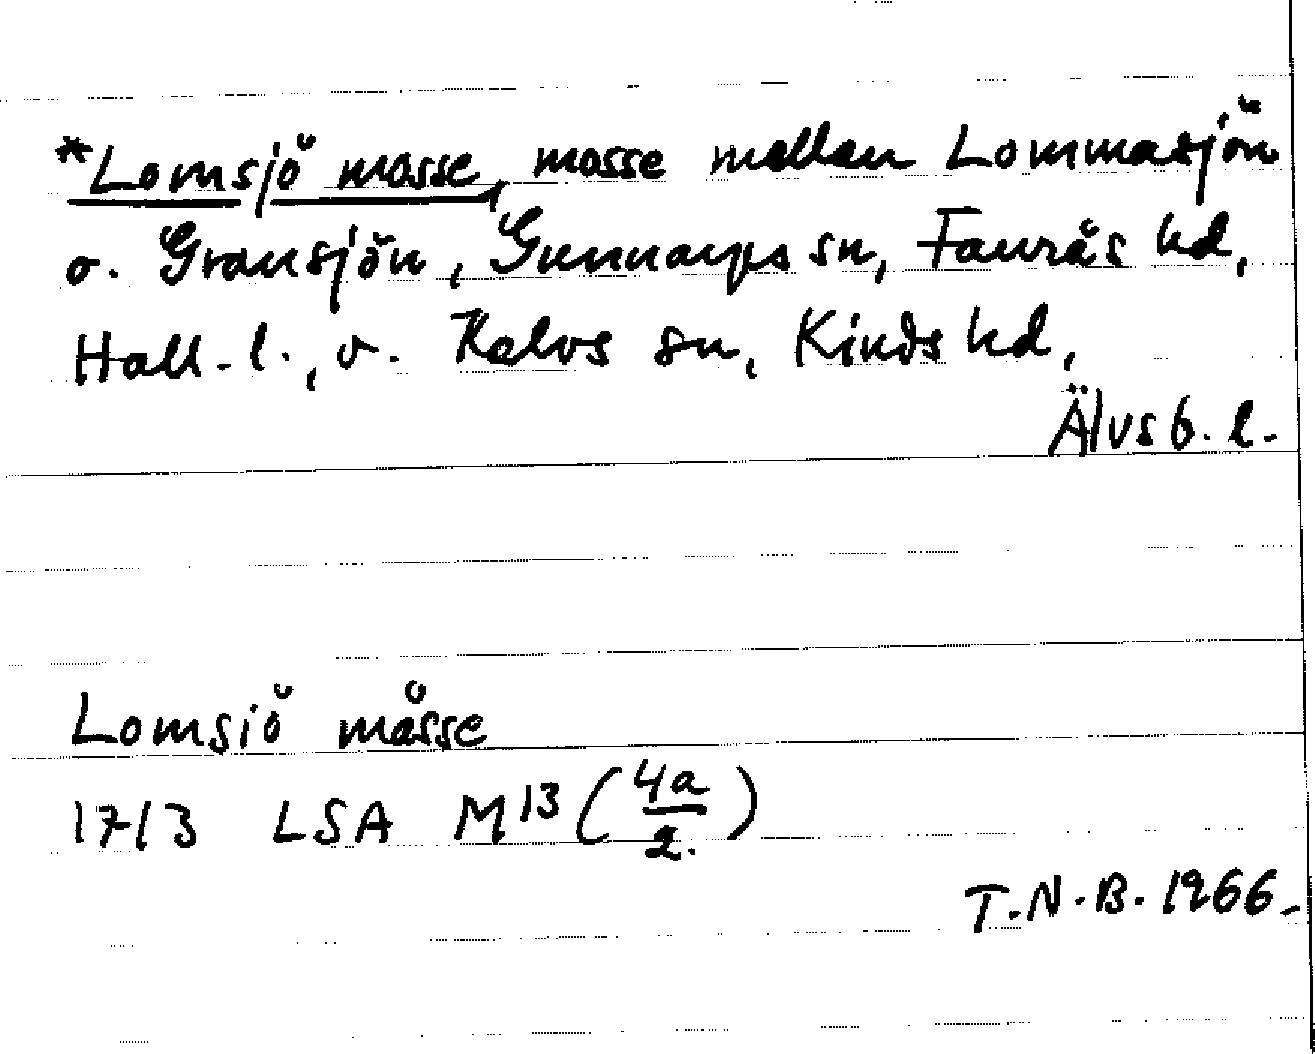 *Lomsjö mosse, mosse mellan Lommasjön
o. Gransjön, Gunnarps sn, Faurås hd,
Hall. l., o. Kalvs sn, Kinds hd,
Älvsb. l.
Lomsiö måsse
1713 LSA M13 (4a/2.)
T.N.B. 1966.